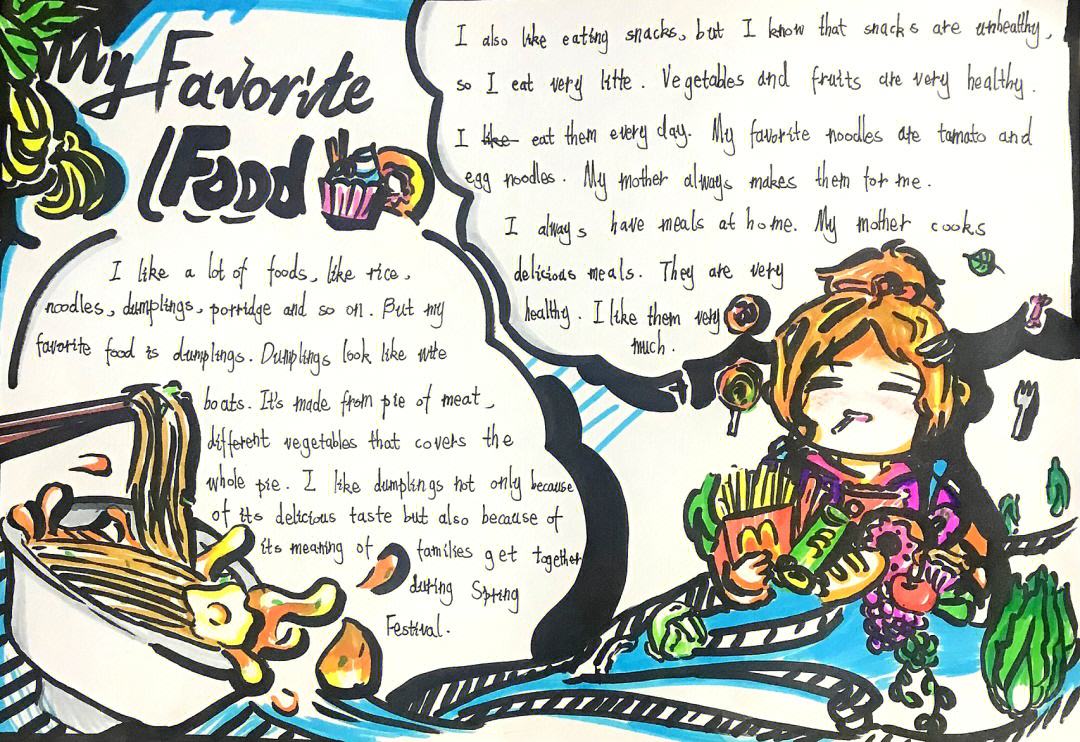 My Favorite
Food
I like a lot of foods, like rice,
noodles, dumplings, porridge and so on. But my
favorite food is dumplings. Dumplings look like wite
boats. It's made from pie of meat,
different vegetables that covers the
whole pie. I like dumplings not only because
of its delicious taste but also because of
its meaning of families get together
during Spring
Festival.
I also like eating snacks, but I know that snacks are unhealthy,
so I eat very litte. Vegetables and fruits are very healthy.
I like eat them every day. My favorite noodles are tamato and
egg noodles. My mother always makes them for me.
I always have meals at home. My mother cooks
delicious meals. They are very
healthy. I like them very
much.